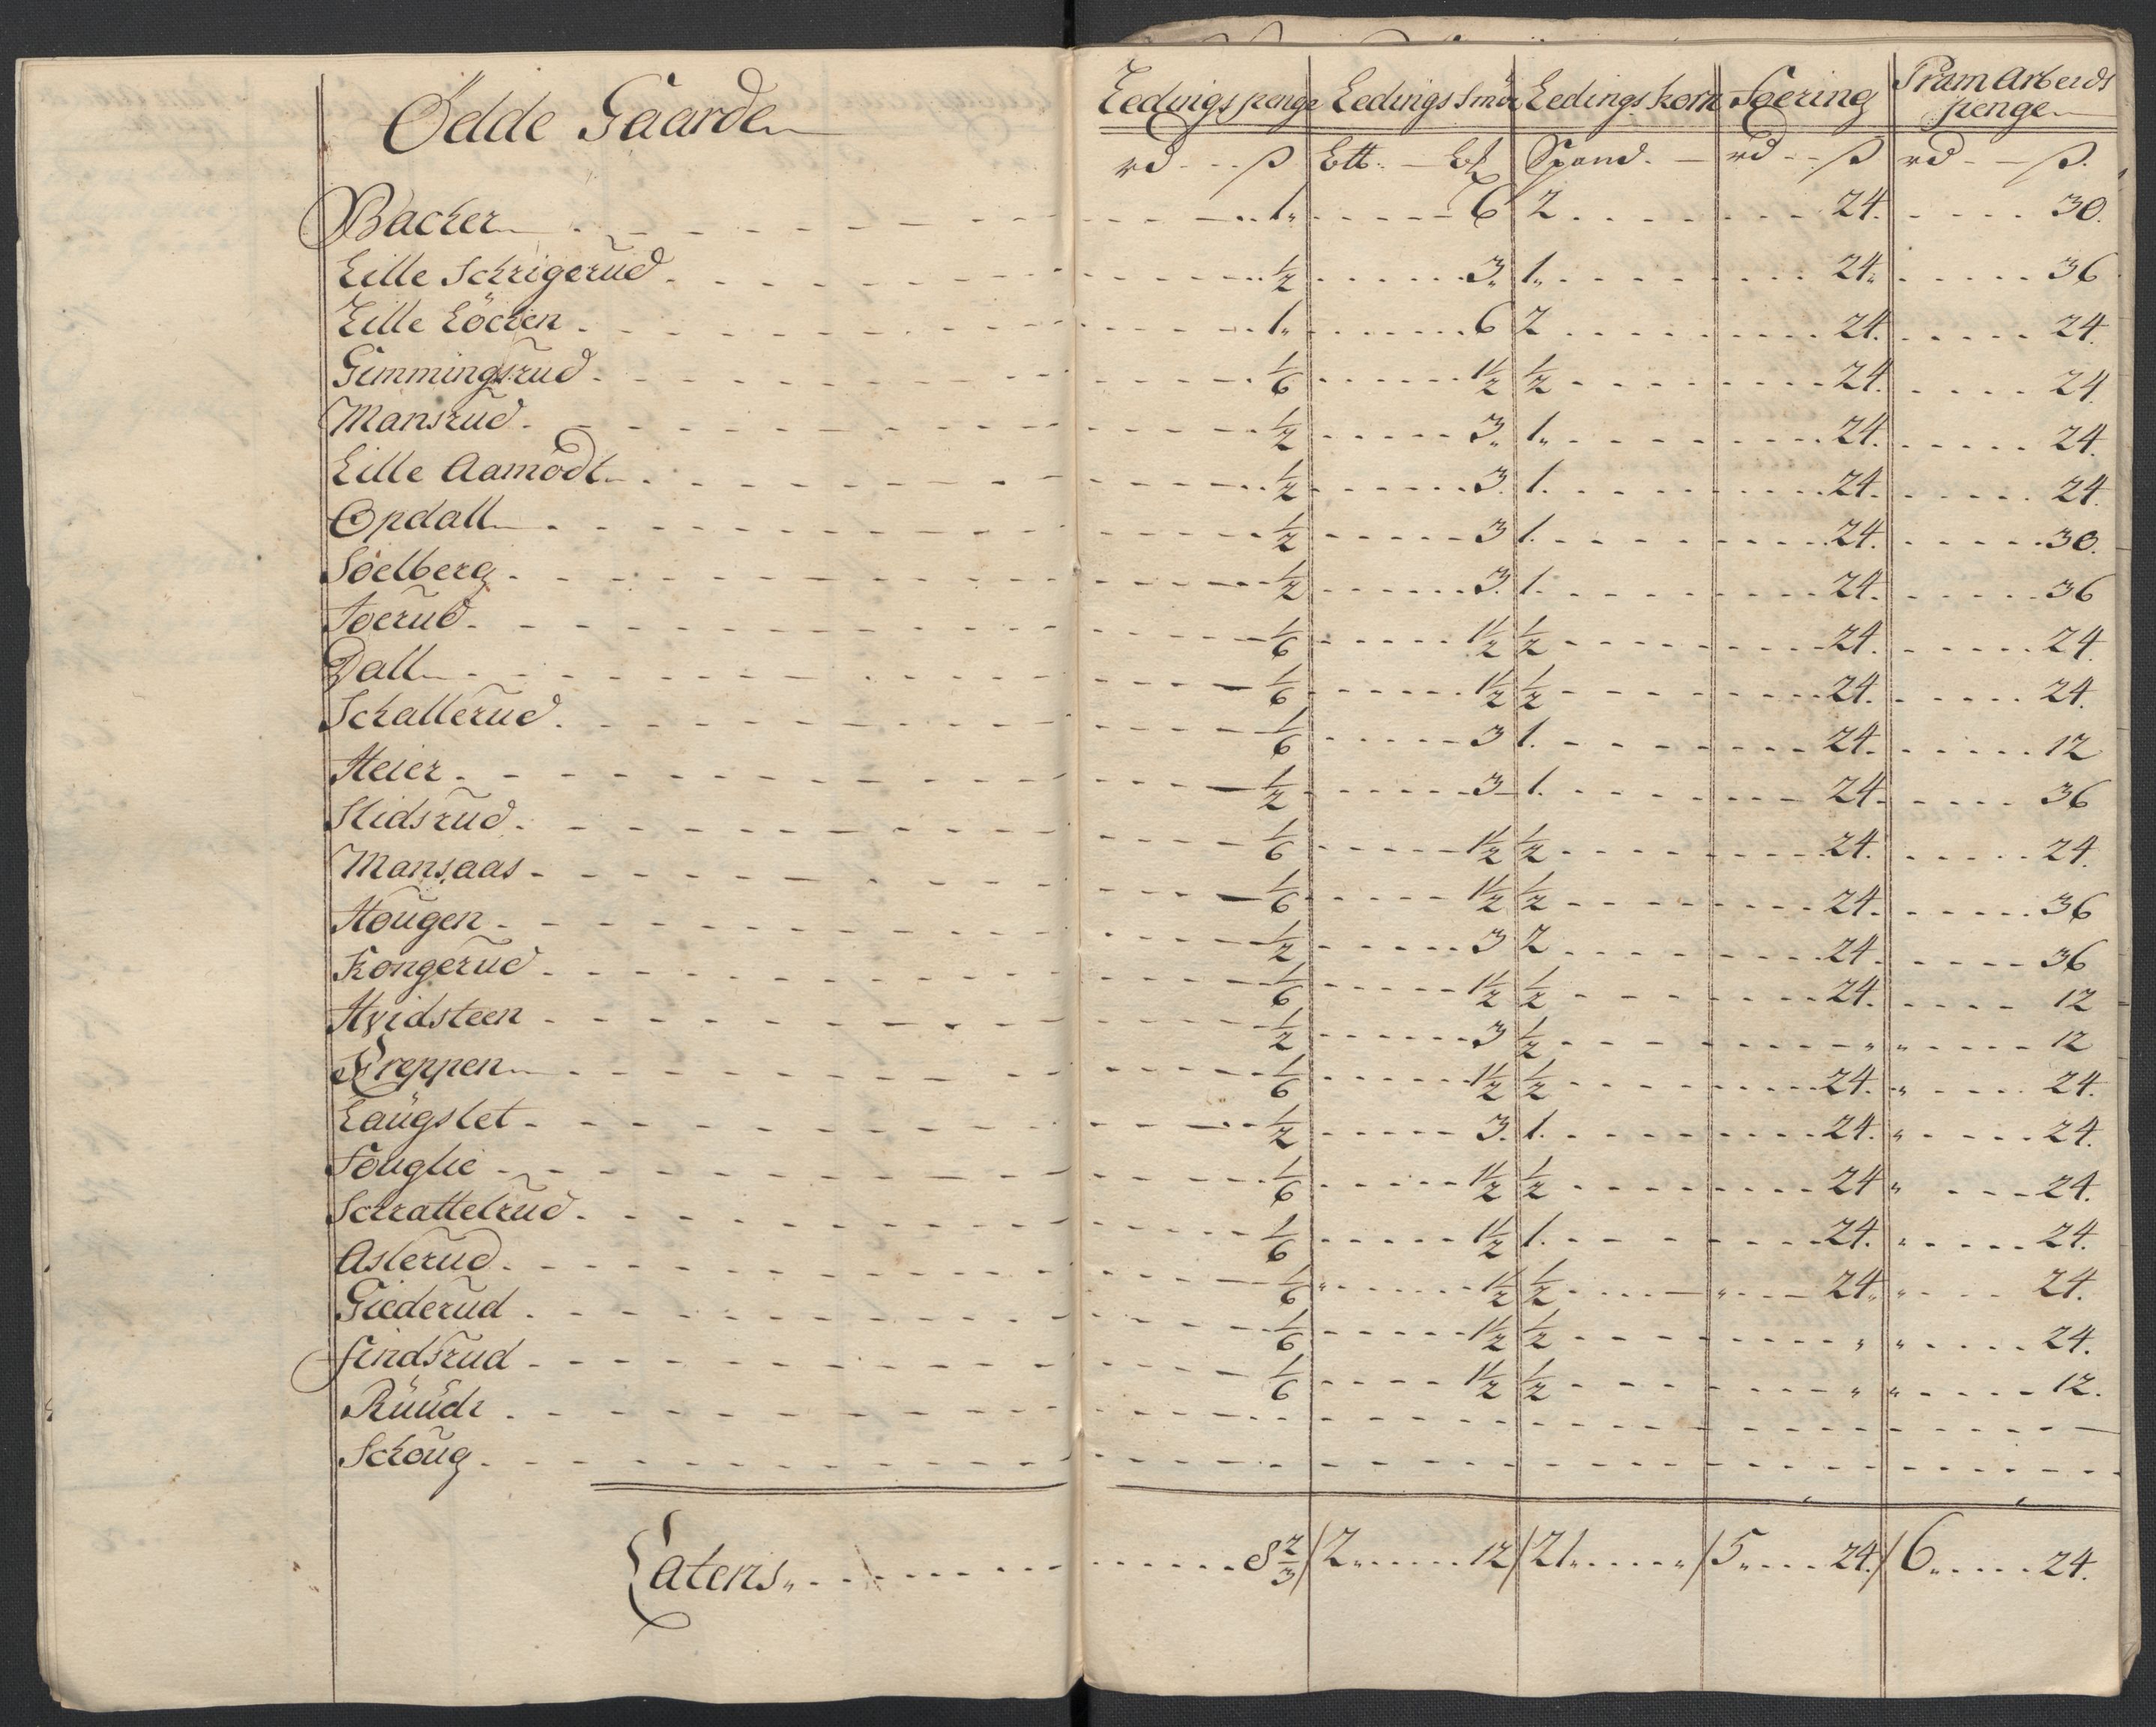 Ödde Gaarde Ledings penge Ledings Smör Ledings korn Foering Pram Arbeids penge
rd ß Spand rd ß rd ß
Backer 1 6 2 24 30
Lille Schrigerud ½ 3 1 24 36
Lille Löcken 1 6 2 24 24
Gimmingsrud 1/6 1½ ½ 24 24
Mansrud ½ 3 1 24 24
Lille Aamodt ½ 3 1 24 24
Opdall ½ 3 1 24 30
Soelberg ½ 3 1 24 36
Toerud 1/6 1½ ½ 24 24
Dall 1/6 1½ ½ 24 24
Schallerud 1/6 3 1 24 12
Heier ½ 3 1 24 36
Slidsrud 1/6 1½ ½ 24 24
Mansaas 1/6 1½ ½ 24 36
Hougen ½ 3 2 24 36
Kongerud 1/6 1½ ½ 24 12
Hvidsteen ½ 3 ½ " " 12
Kreppen 1/6 1½ ½ 24 " 24
Laugslet ½ 3 1 24 " 24
Fouglie 1/6 1½ ½ 24 " 24
Schrattelrud 1/6 1½ 1 24 " 24
Aslerud 1/6 " 1½ ½ " 24 " 24
Giederud 1/6 1½ ½ " " 24
Findsrud 1/6 1½ ½ " " 12
Ruudt
Schoug
Lateris 8⅔ / 2 12 / 21 " / 5 24 / 6 24